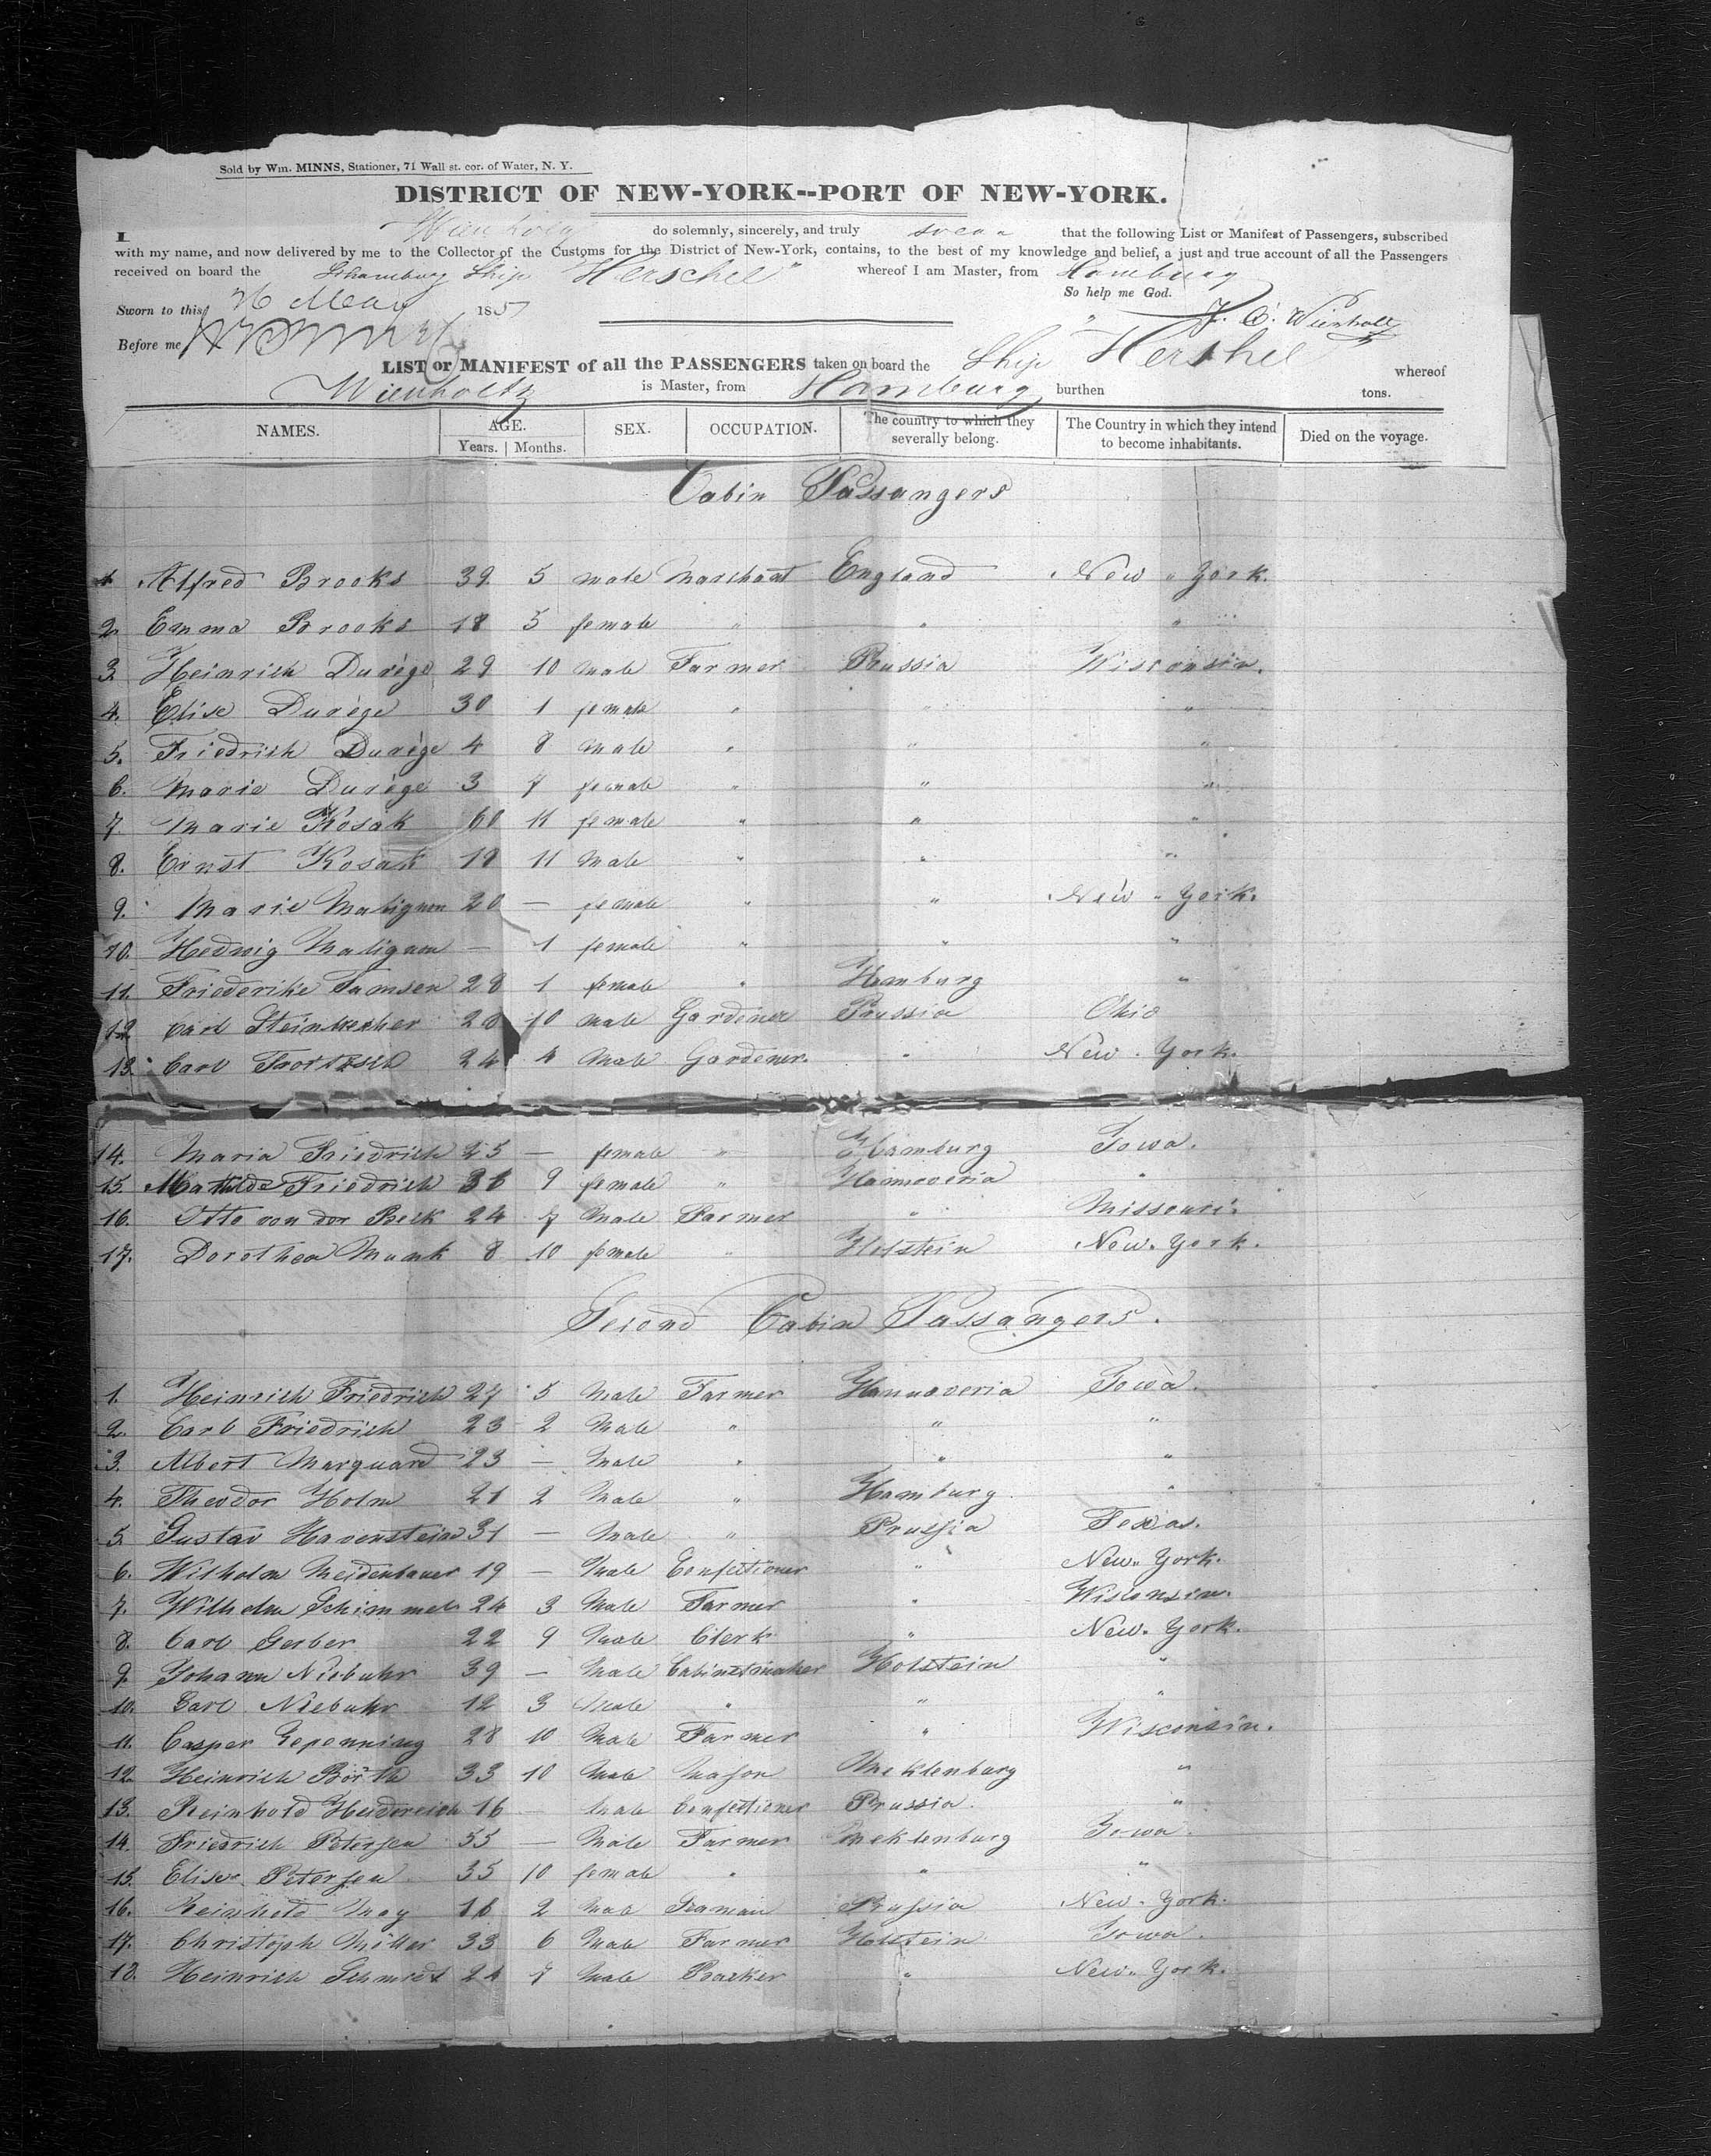 Sold by Wm. MINNS, Stationer, 71 Wall st. cor. of Water, N. Y.
DISTRICT OF NEW-YORK--PORT OF NEW-YORK.
I do solemnly, sincerely, and truly swear that the following List or Manifest of Passengers, subscribed
with my name, and now delivered by me to the Collector of the Customs for the District of New-York, contains, to the best of my knowledge and belief, a just and true account of all the Passengers
received on board the Ship "Herschel" whereof I am Master, from Hamburg
So help me God.
Sworn to this 26 May 1857
Before me
LIST or MANIFEST of all the PASSENGERS taken on board the Ship Hershel whereof
Wienholtz is Master, from Hamburg burthen tons.
NAMES. AGE. Years. Months. SEX. OCCUPATION. The country to which they severally belong. The Country in which they intend to become inhabitants. Died on the voyage.
Cabin Passangers
1. Alfred Brooks 39 5 male Marchant England New York.
2. Emma Brooks 18 5 female " " "
3. Heinrich Durège 29 10 male Farmer Prussia Wisconsin.
4. Elise Durège 30 1 female " " "
5. Friedrich Durège 4 8 male " " "
6. Marie Durège 3 7 female " " "
7. Marie Kosak 60 11 female " " "
8. Ernst Kosak 18 11 male " " "
9. Marie Malignon 20 — female " " New York.
10. Hedwig Malignon — 1 female " " "
11. Friederike Tamsen 28 1 female " Hamburg "
12. Carl 28 10 male Gardener Prussia Ohio
13. Carl 24 4 male Gardener " New York.
14. Maria Friedrich 25 — female " Hamburg Iowa.
15. Mathilde Friedrich 36 9 female " Hannoveria "
16. Otto von der Beck 24 7 male Farmer " Missouri.
17. Dorothea Munk 8 10 female " Holstein New-York.
Second Cabin Passangers.
1. Heinrich Friedrich 27 5 male Farmer Hannoveria Iowa.
2. Carl Friedrich 23 2 male " " "
3. Albert Marquard 23 — male " " "
4. Theodor Holm 21 2 male " Hamburg "
5. Gustav Havenstein 31 — male " Prussia Texas.
6. Wilhelm Neidenbauer 19 — male Confectioner " New-York.
7. Wilhelm Schimmel 24 3 male Farmer " Wisconsin.
8. Carl Gerber 22 9 male Clerk " New-York.
9. Johann Niebuhr 39 — male Cabinetmaker Holstein "
10. Carl Niebuhr 12 3 male " " "
11. Casper 28 10 male Farmer " Wisconsin.
12. Heinrich 33 10 male Mason Meklenburg "
13. Reinhold Heidereich 16 male Confectioner Prussia. "
14. Friedrich Petersen 55 — male Farmer Meklenburg Iowa.
15. Elise Petersen 35 10 female " " "
16. Reinhold May 16 2 male Seaman Prussia New-York.
17. Christoph Möller 33 6 male Farmer Holstein Iowa.
18. Heinrich Schmidt 24 7 male Backer " New-York.